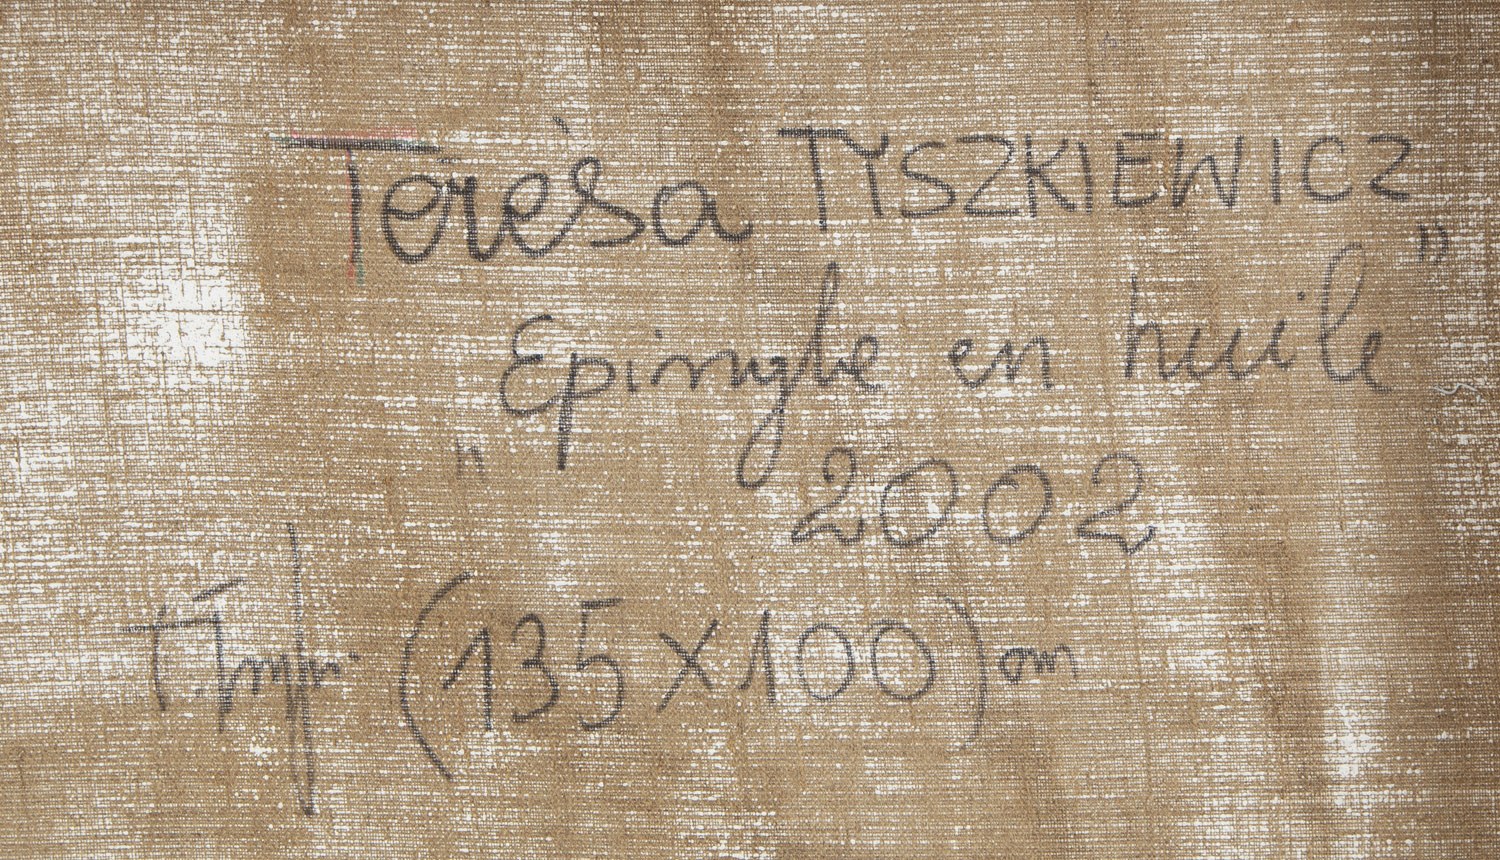 Terèsa TYSZKIEWICZ
"Epingle en huile"
2002
(135 x 100) cm